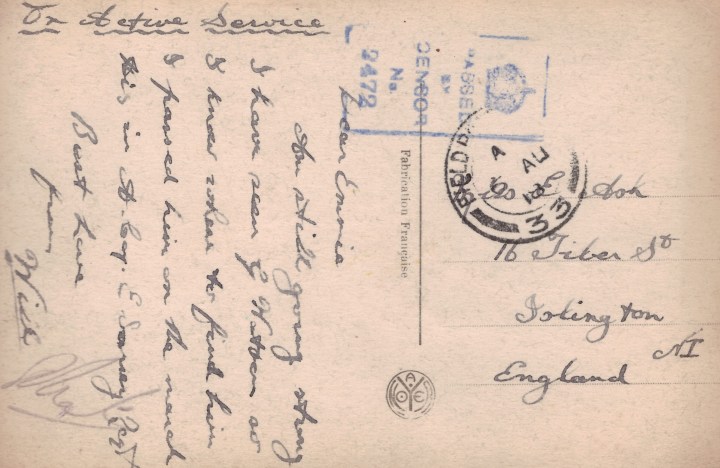 On Active Service
PASSED
BY
CENSOR
No.
2472
Dear Emmie
Am still going strong
I have seen G
I know where to find him
I passed him on the march
His in A. Coy. E Surrey Regt
Best love
from
Will
Fabrication Française
FIELD P
A
AU
18
33
Ash
16 Tiber St
Islington
N1
England